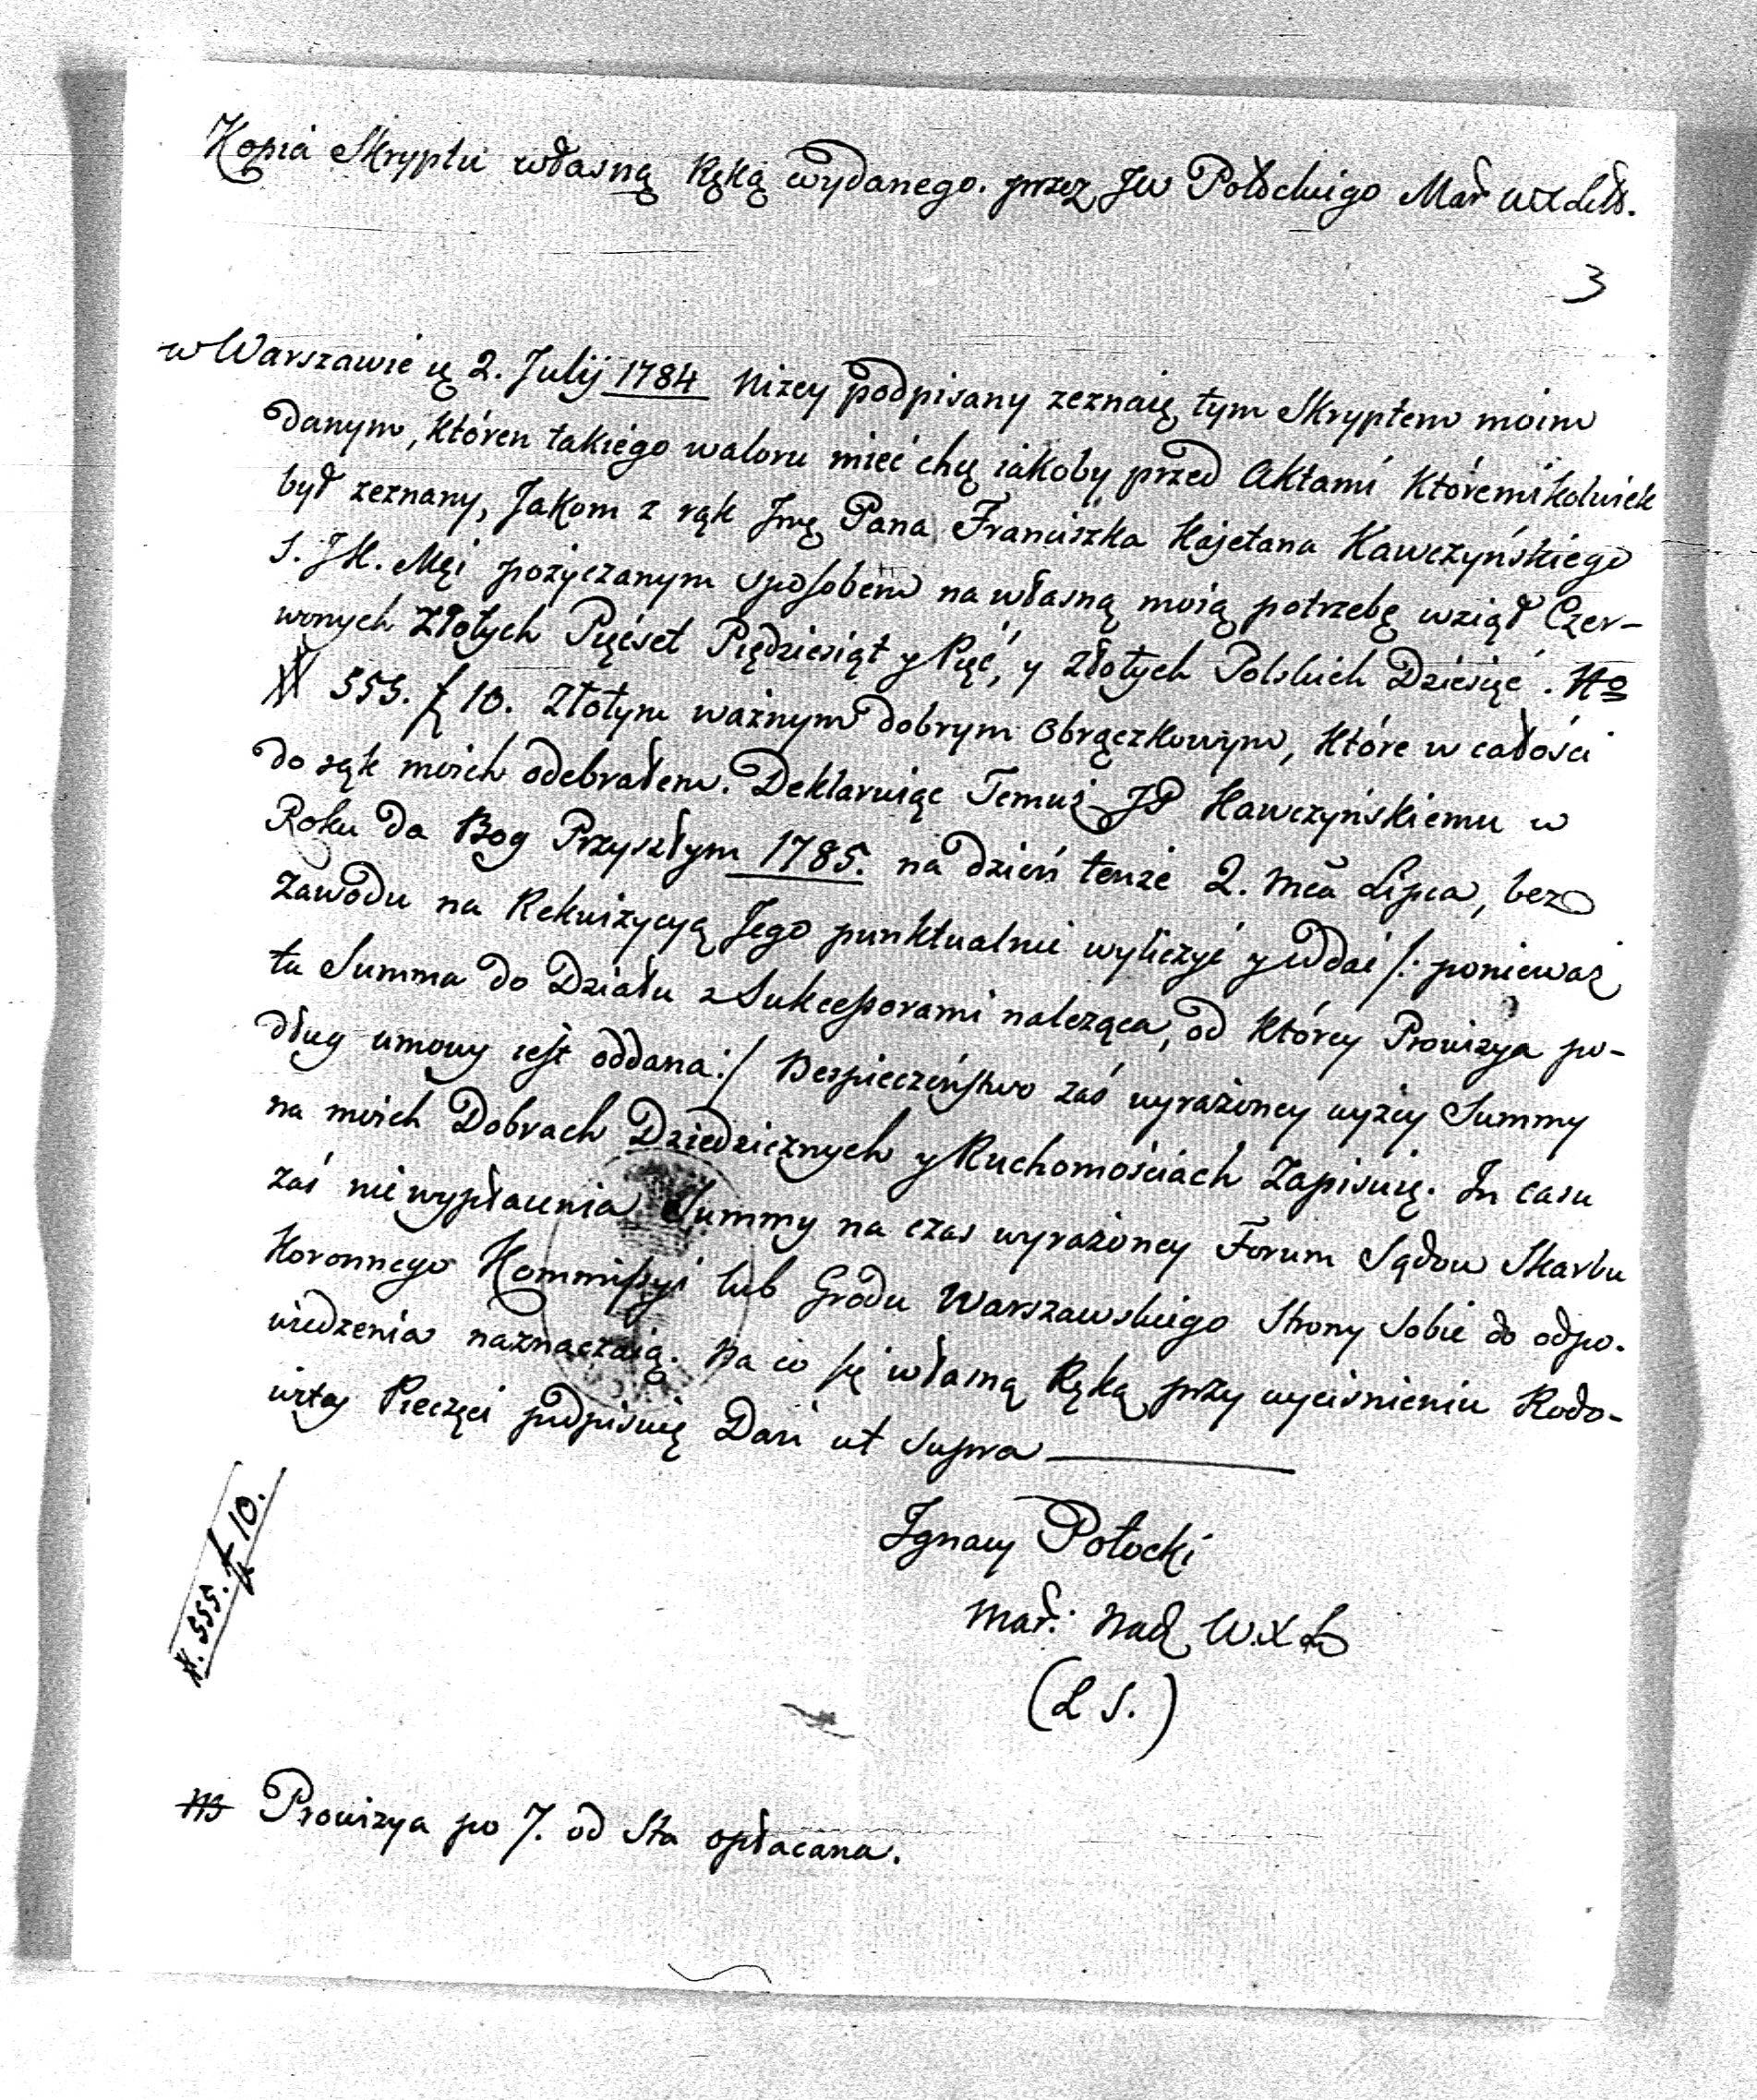 Kopia Skryptu własną Ręką wydanego. przez JW Potockiego Mar WXLitt.
3
w Warszawie d. 2. Julij 1784 Nizey podpisany zeznaię tym Skryptem moim
danym, któren takiego waloru mieć chcę iakoby przed Aktami któremikolwiek
był zeznany, Jakom z rąk Jmę Pana Franciszka Kajetana Kawczyńskiego
S. JK. Męi pożyczanym sposobem na własną moią potrzebę wziął Czer-
wonych Złotych Pięćset Pięдziesiąt y Pięć, y Złotych Polskich Dziesięć. No
# 555. f 10. Złotym ważnym dobrym Obrączkowym, które w całości
do rąk moich odebrałem. Deklaruiąc Temuż JP Kawczyńskiemu w
Roku da Bog Przyszłym 1785. na dzień tenże 2. mca Lipca, bez
Zawodu na Rekwizycyą Jego punktualnie wyliczyć y oddać /: ponieważ
ta Summa do Działu z Sukcessorami należąca, od którey Prowizya po-
dług umowy iest oddana :/ Bespieczeństwo zaś wyrażoney wyżey Summy
na moich Dobrach Dziedzicznych y Ruchomościach Zapisuię. In casu
zaś nie wypłacenia Summy na czas wyrażoney Forum Sądow Skarbu
Koronnego Kommissyi lub Grodu Warszawskiego Strony Sobie do odpo-
wiedzenia naznaczaią. Na co się własną Ręką przy wyciśnieniu Rodo-
witey Pieczęci podpisuię Dań ut supra
Ignacy Potocki
Mar: Nad W.X.L
(L S.)
#. 555. f 10.
NB Prowizya po 7. od Sta opłacana.